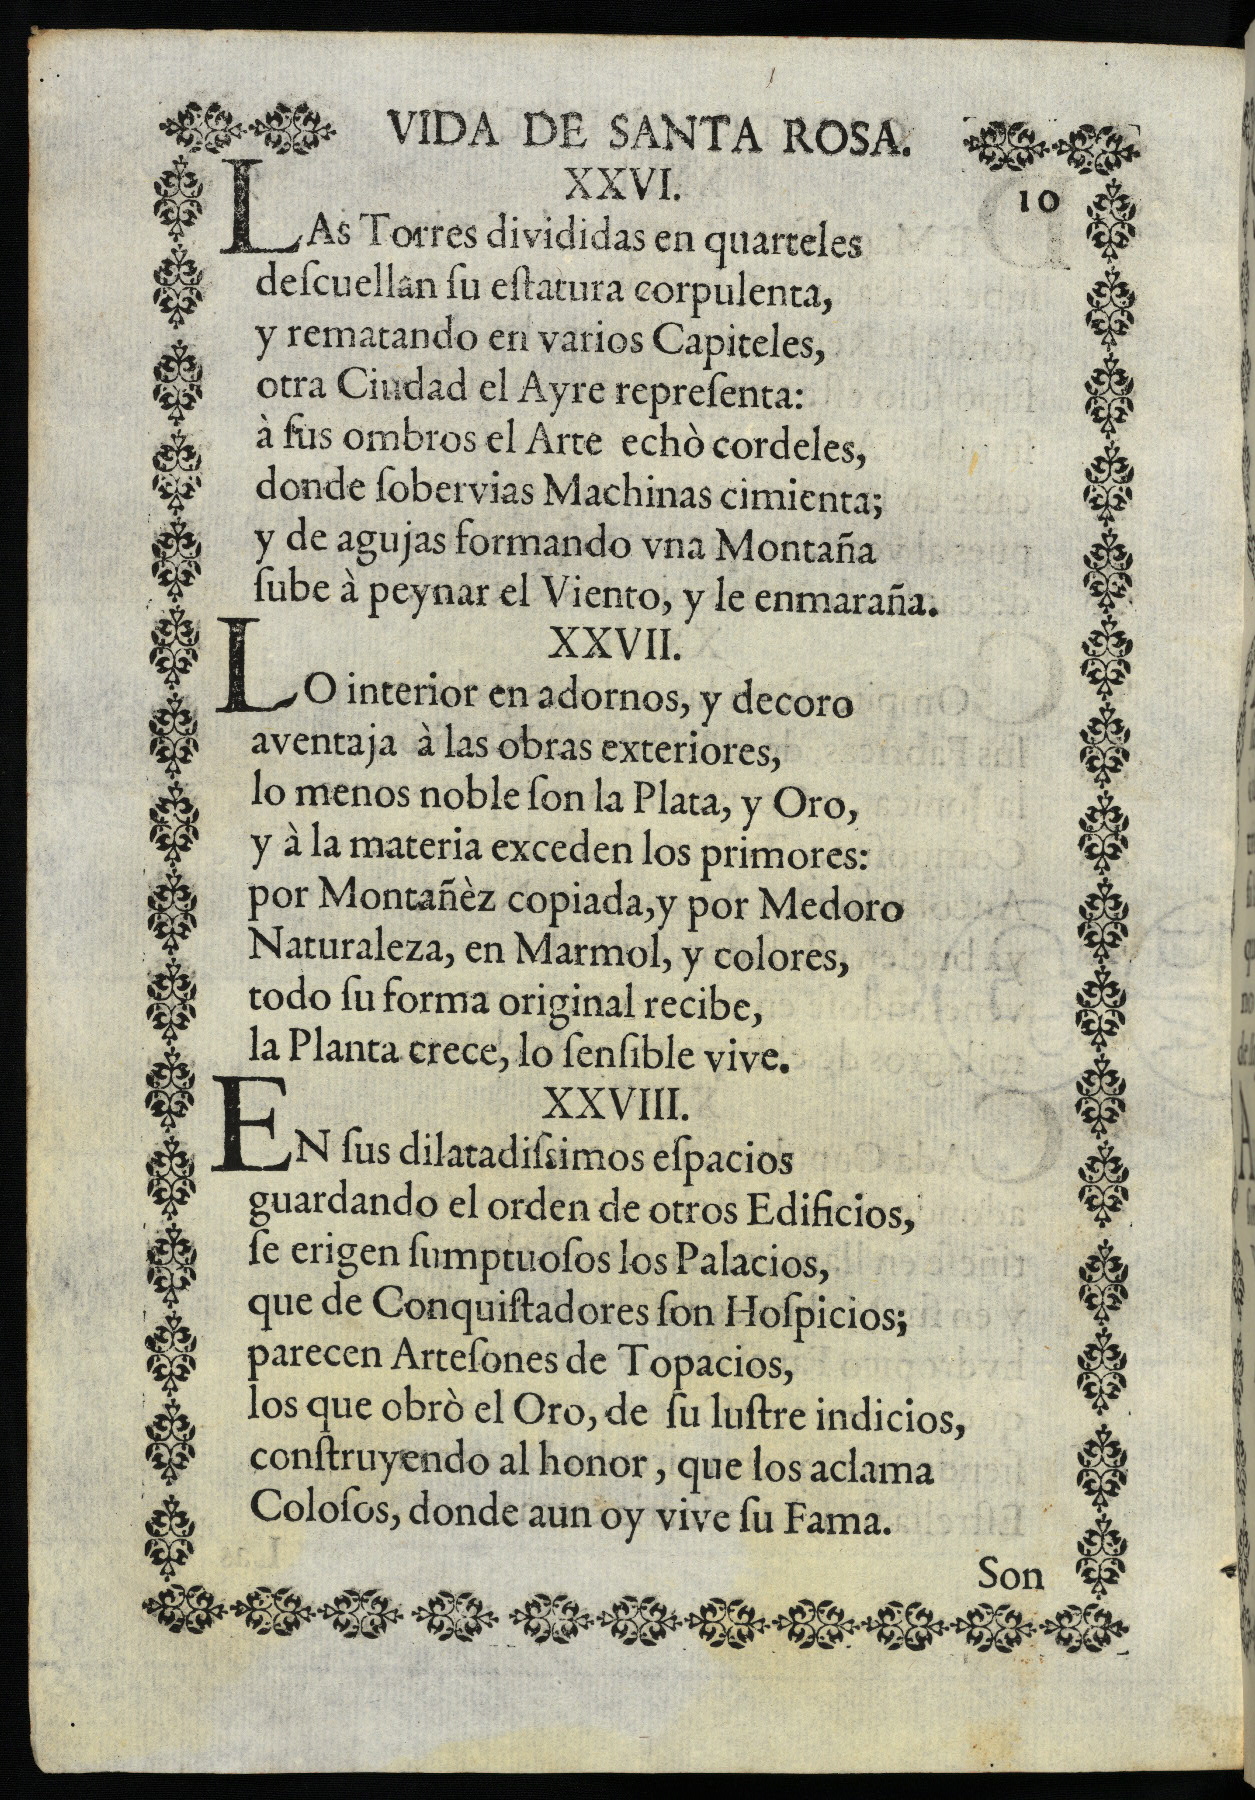 VIDA DE SANTA ROSA.
10
XXVI.
LAs Torres divididas en quarteles
deſcuellan ſu eſtatura corpulenta,
y rematando en varios Capiteles,
otra Ciudad el Ayre repreſenta:
à ſus ombros el Arte echò cordeles,
donde ſobervias Machinas cimienta;
y de agujas formando vna Montaña
ſube à peynar el Viento, y le enmaraña.
XXVII.
LO interior en adornos, y decoro
aventaja à las obras exteriores,
lo menos noble ſon la Plata, y Oro,
y à la materia exceden los primores:
por Montañèz copiada,y por Medoro
Naturaleza, en Marmol, y colores,
todo ſu forma original recibe,
la Planta crece, lo ſenſible vive.
XXVIII.
EN ſus dilatadiſsimos eſpacios
guardando el orden de otros Edificios,
ſe erigen ſumptuoſos los Palacios,
que de Conquiſtadores ſon Hoſpicios;
parecen Arteſones de Topacios,
los que obrò el Oro, de ſu luſtre indicios,
conſtruyendo al honor, que los aclama
Coloſos, donde aun oy vive ſu Fama.
Son